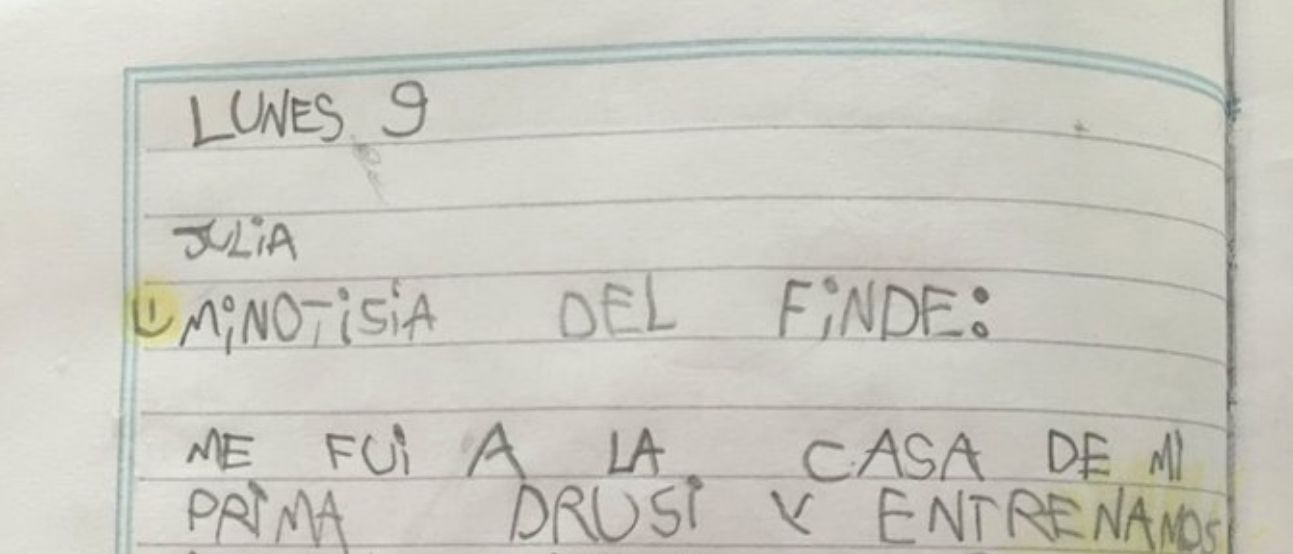 LUNES 9
JULIA
1) MINOTISIA DEL FINDE:
ME FUI A LA CASA DE MI
PRIMA DRUSI Y ENTRENAMOS